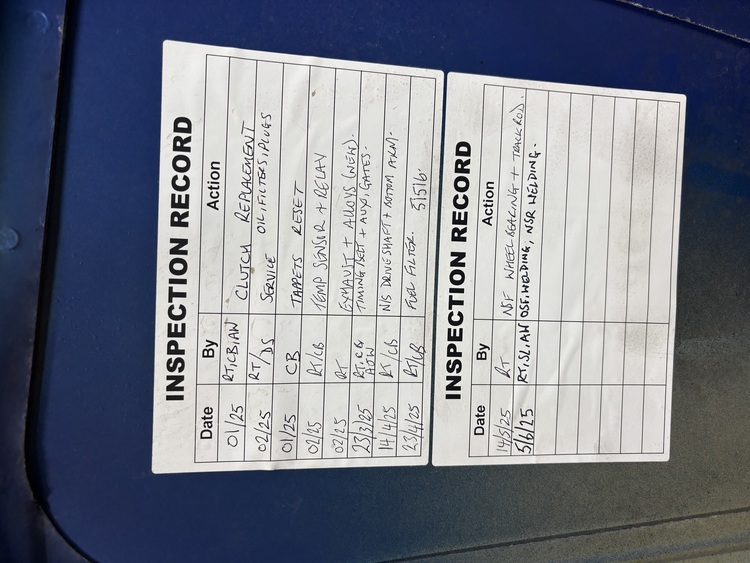 INSPECTION RECORD
Date By Action
01/25 RT,CB,AW CLUTCH REPLACEMENT
02/25 RT/DS SERVICE OIL, FILTERS, PLUGS
01/25 CB TAPPETS RESET
02/25 RT/CB TEMP SENSOR + RELAY
02/25 RT EXHAUST + ALLOYS (NEW).
23/3/25 RT, CB AOW TIMING BELT + AUX, GATES.
14/4/25 RT/CB N/S DRIVESHAFT + BOTTOM ARM.
23/4/25 RT/CB FUEL FILTER. 5/5/6.
INSPECTION RECORD
Date By Action
14/5/25 RT NSF WHEEL BEARING + TRACK ROD.
5/6/25 RT, SL, AW OSF. WELDING, NSR WELDING.